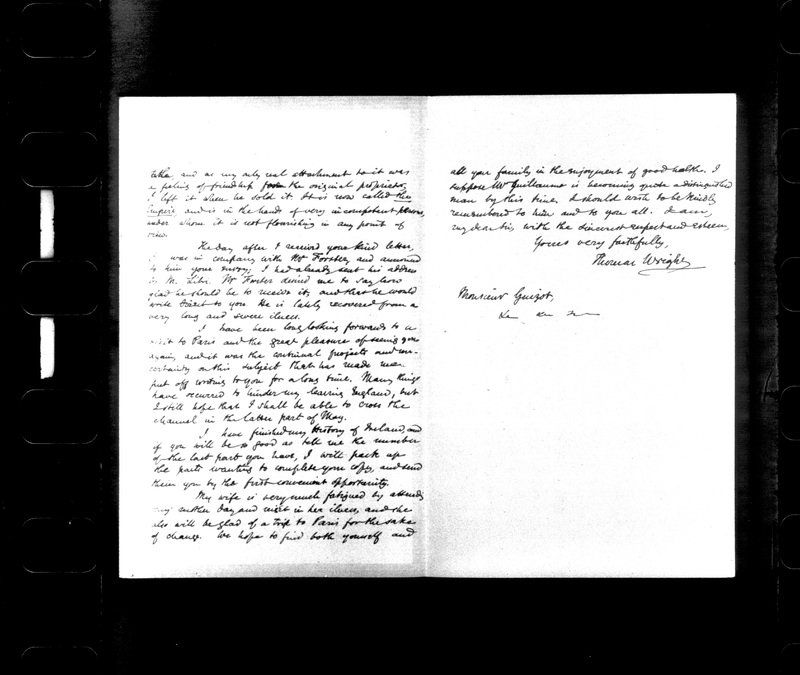 take and as my only real attachment to it was
a feeling of friendship for the original proprietor,
I left it when he sold it. It is now called the
Empire and is in the hands of very incompetent persons,
under whom it is not flourishing in any point of
view.
The day after I received your kind letter,
I was in company with Mr Forster, and announced
to him your story; I had already sent his address
to M. Libri. Mr Forster desired me to say how
glad he should be to receive it, and that he would
write to you. He is lately recovered from a
very long and severe illness.
I have been long looking forwards to a
visit to Paris and the great pleasure of seeing you
again, and it was the continual projects and un-
certainty on this subject that has made me
put off writing to you for a long time. Many things
have occurred to hinder my leaving England, but
I still hope that I shall be able to cross the
channel in the latter part of May.
I have finished my History of Ireland, and
if you will be so good as tell me the number
of the last part you have, I will pack up
the parts wanting to complete your copy, and send
them you by the first convenient opportunity.
My wife is very much fatigued by attending
my mother day and night in her illness, and she
also will be glad of a trip to Paris for the sake
of change. We hope to find both yourself and
all your family in the enjoyment of good health. I
suppose Mr Guillaume is becoming quite a distinguished
man by this time. I should wish to be kindly
remembered to him and to you all. I am,
my dear Sir, with the sincerest respect and esteem,
Yours very faithfully,
Thomas Wright
Monsieur Guizot,